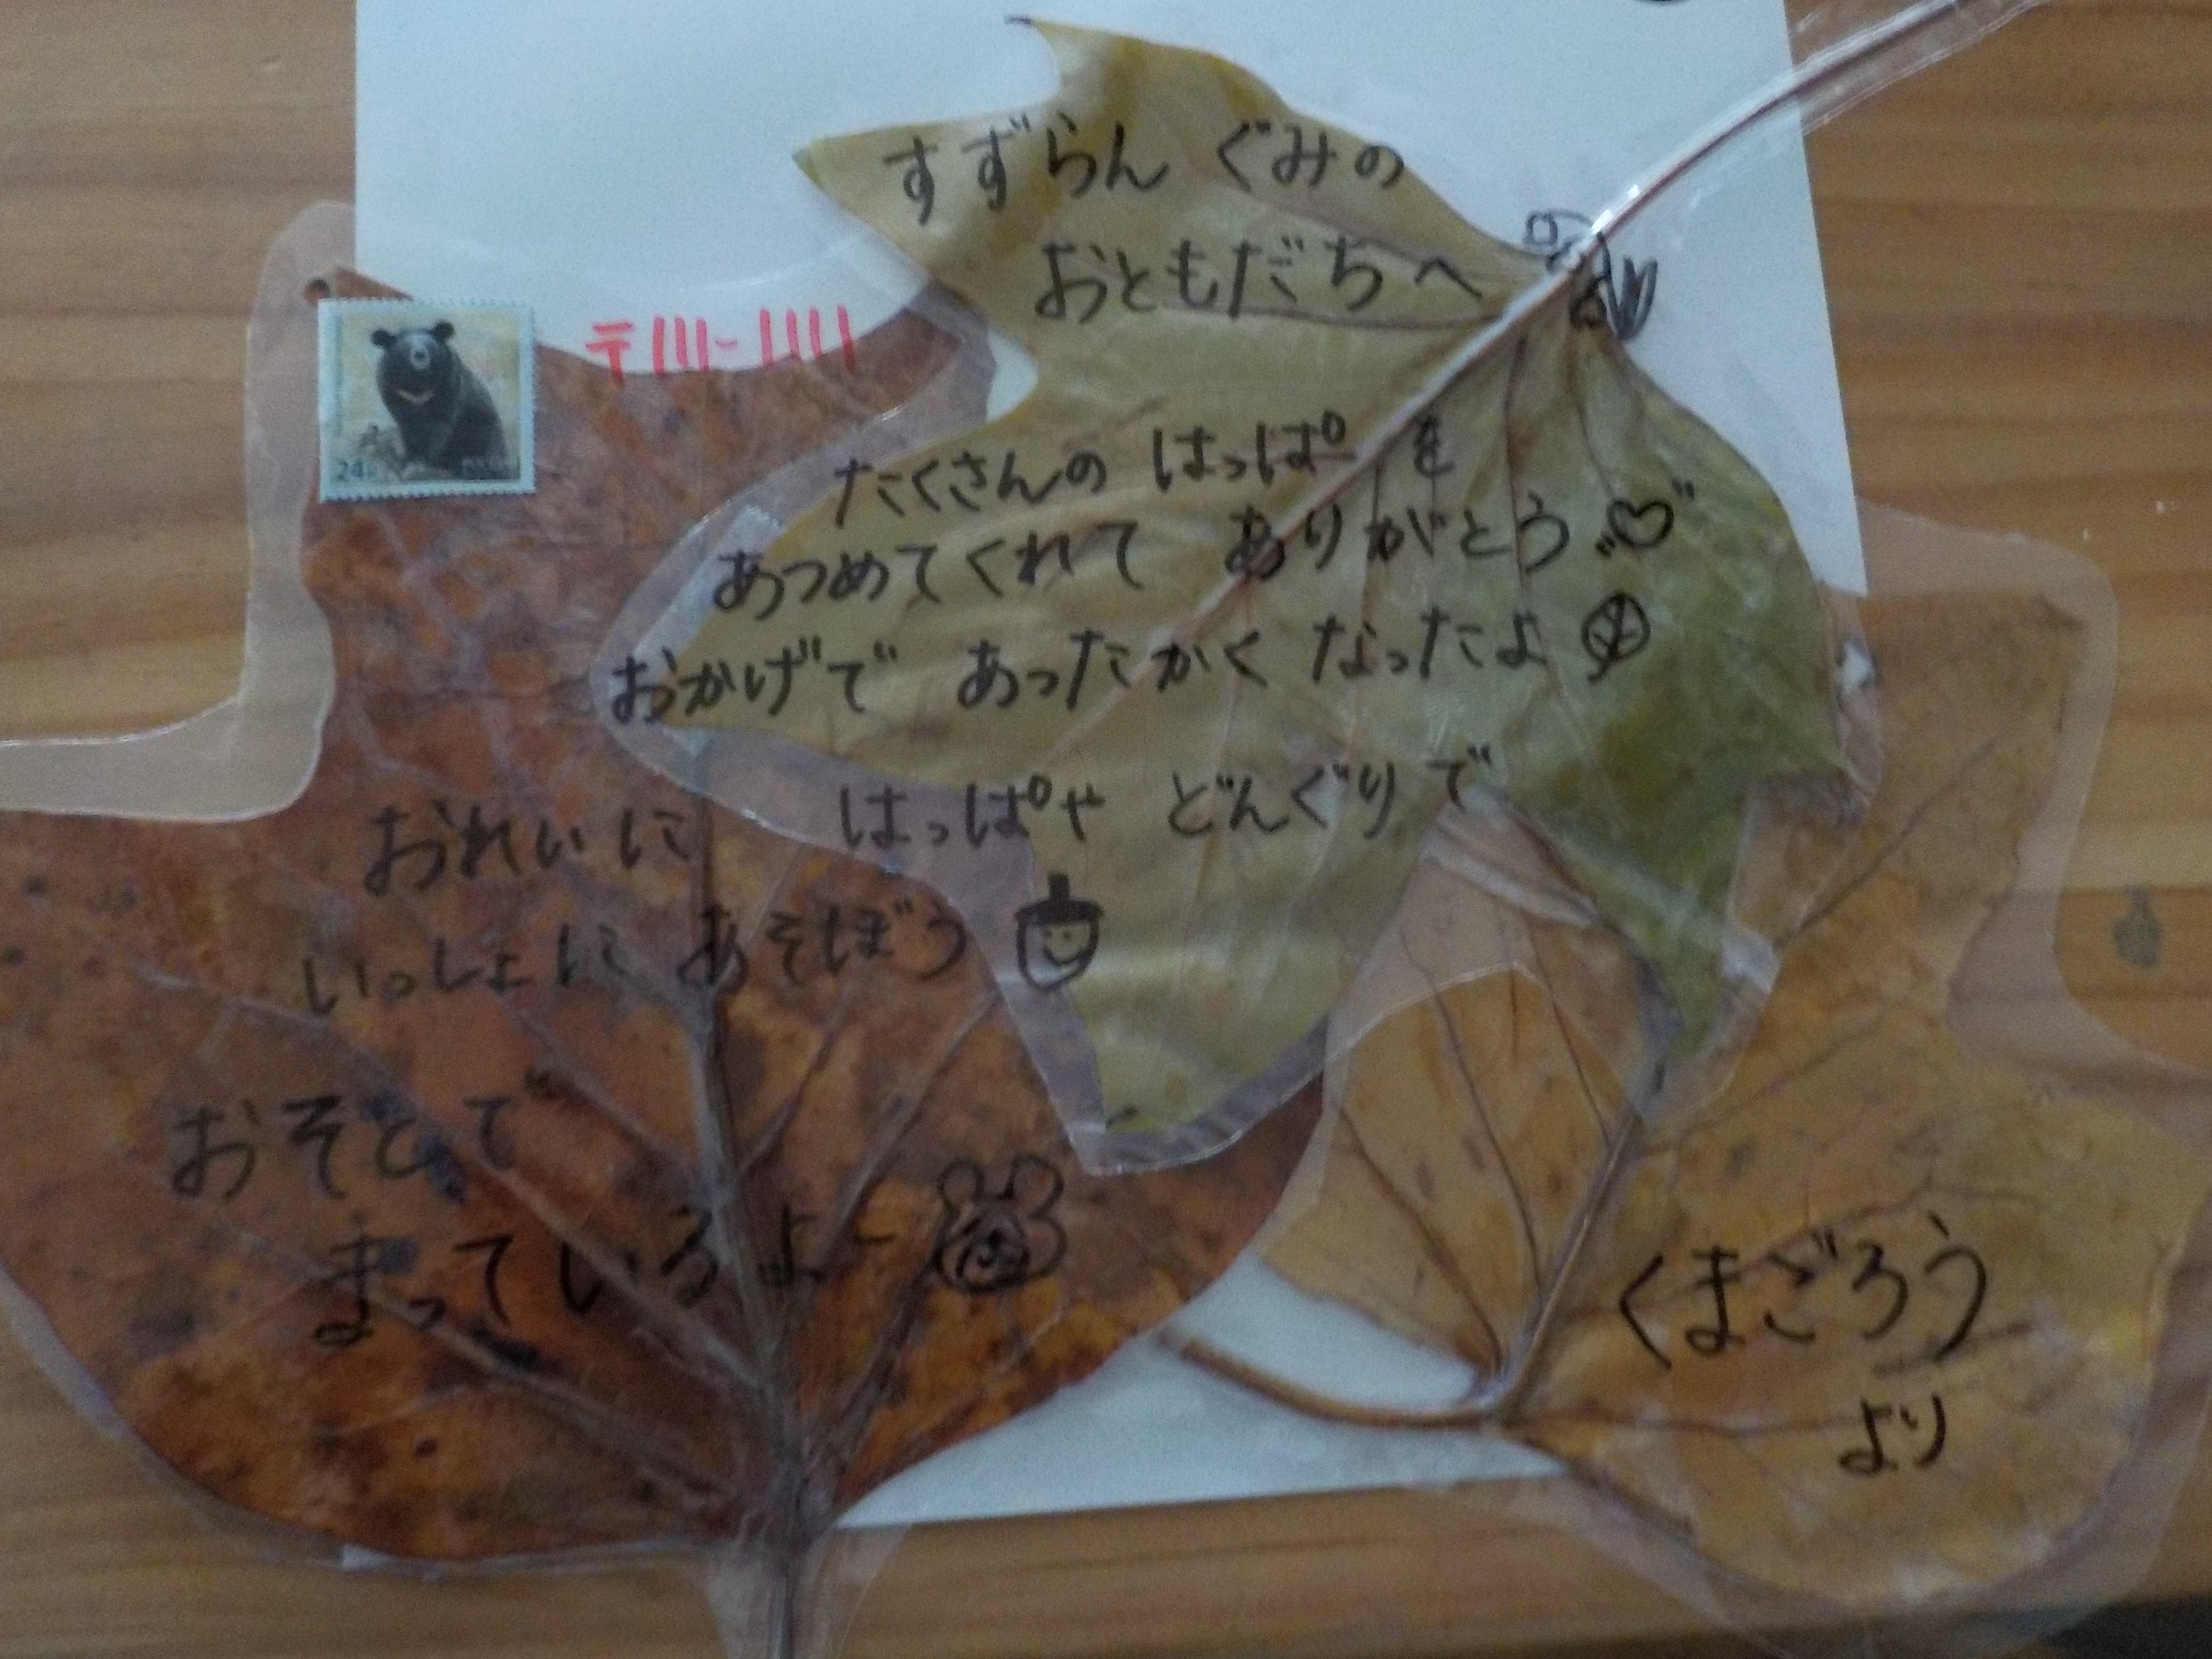 すずらん ぐみの
おともだちへ
〒111-1111
たくさんの はっぱ を
あつめてくれて ありがとう
おかげで あったかく なったよ
おれいに はっぱや どんぐりで
いっしょに あそぼう
おそとで
まっているよー
くまごろう
より